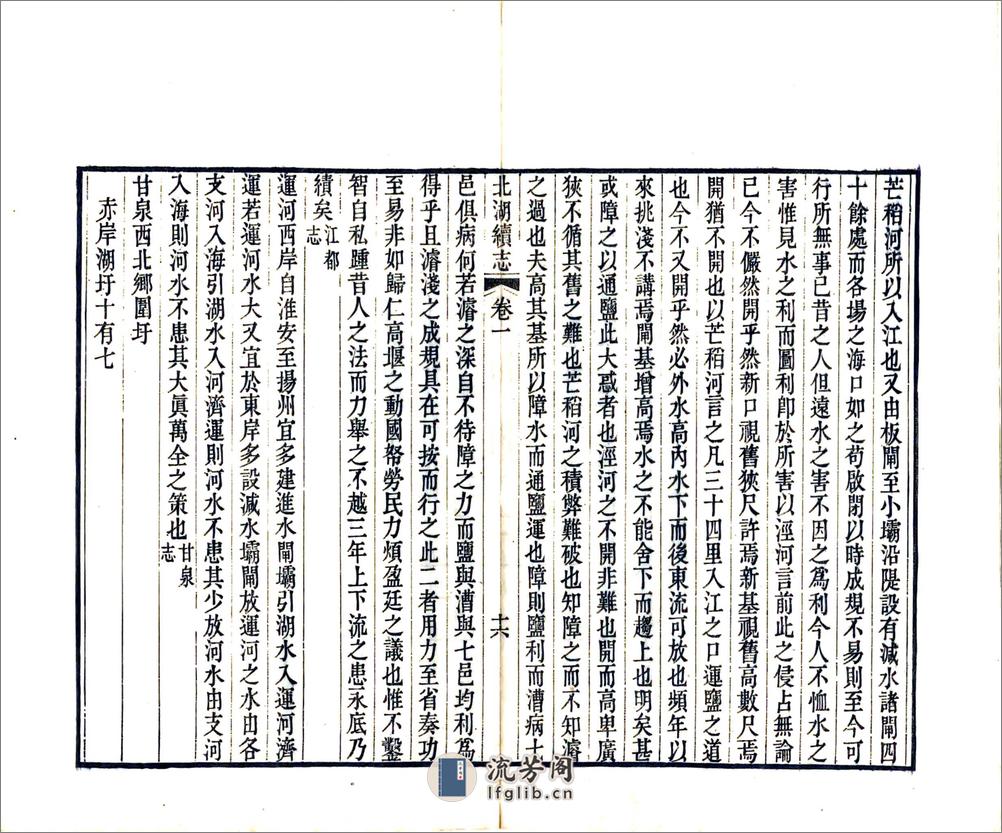 芒稻河所以入江也又由板閘至小壩沿隄設有減水諸閘四
十餘處而各場之海口如之苟啟閉以時成規不易則至今可
行所無事已昔之人但遠水之害不因之爲利今人不恤水之
害惟見水之利而圖利卽於所害以涇河言前此之侵占無論
已今不儼然開乎然新口視舊狹尺許焉新基視舊高數尺焉
開猶不開也以芒稻河言之凡三十四里入江之口運鹽之道
也今不又開乎然必外水高內水下而後東流可放也頻年以
來挑淺不講焉閘基增高焉水之不能舍下而趨上也明矣甚
或障之以通鹽此大惑者也涇河之不開非難也開而高卑廣
狹不循其舊之難也芒稻河之積弊難破也知障之而不知濬
之過也夫高其基所以障水而通鹽運也障則鹽利而漕病七
北湖續志
卷一
十六
邑俱病何若濬之深自不待障之力而鹽與漕與七邑均利爲
得乎且濬淺之成規具在可按而行之此二者用力至省奏功
至易非如歸仁高堰之動國帑勞民力煩盈廷之議也惟不鑿
智自私踵昔人之法而力舉之不越三年上下流之患永底乃
績矣江都志
運河西岸自淮安至揚州宜多建進水閘壩引湖水入運河濟
運若運河水大又宜於東岸多設減水壩閘放運河之水由各
支河入海引湖水入河濟運則河水不患其少放河水由支河
入海則河水不患其大眞萬全之策也甘泉志
甘泉西北鄉圍圩
赤岸湖圩十有七
流芳阁
lfglib.cn